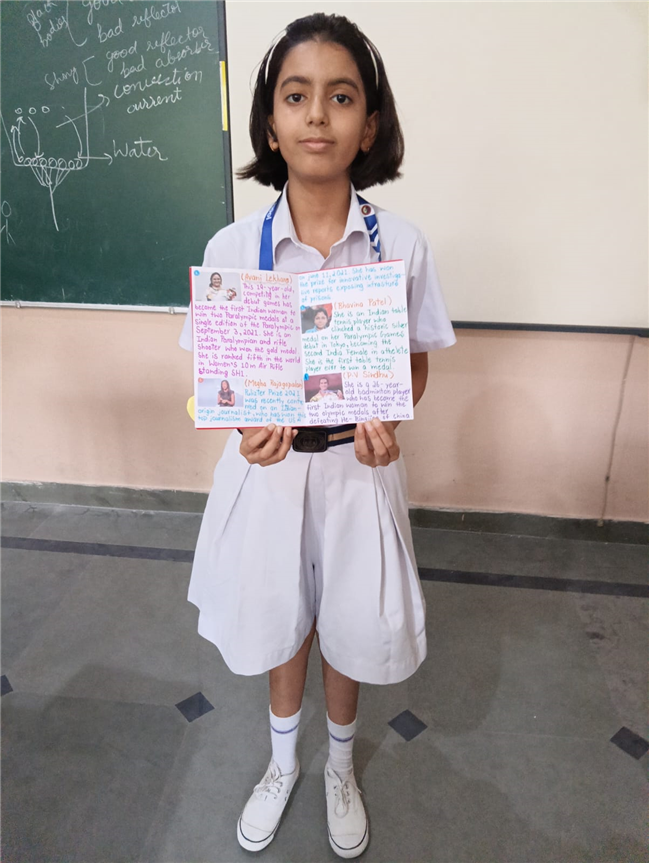 black
bodies
good
bad reflector
Shiny
good reflector
bad absorber
convection
current
Water
(Avani Lekhara)
This 19-year-old,
competing in her
debut games has
become the first Indian woman to
win two Paralympic medals at a
single edition of the Paralympic on
September 3, 2021. She is an
Indian Paralympian and rifle
shooter who won the gold medal
She is ranked fifth in the world
in women's 10 m Air Rifle
standing SH1.
(Megha Rajagopalan)
Pulitzer Prize 2021
was recently
origin journalist, who has won
on June 11, 2021. She has won
the prize for innovative investiga-
reports exposing
of prison
(Bhavina Patel)
She is an Indian table
tennis player who
clinched a historic silver
medal on her Paralympic Games
debut in Tokyo, becoming the
second India Female
She is the first table tennis
player ever to win a medal
(P.V. Sindhu)
She is a 26-year-
old badminton player
who has become the
first Indian woman to win the
two olympic medals after
defeating He-Bingjiao of China